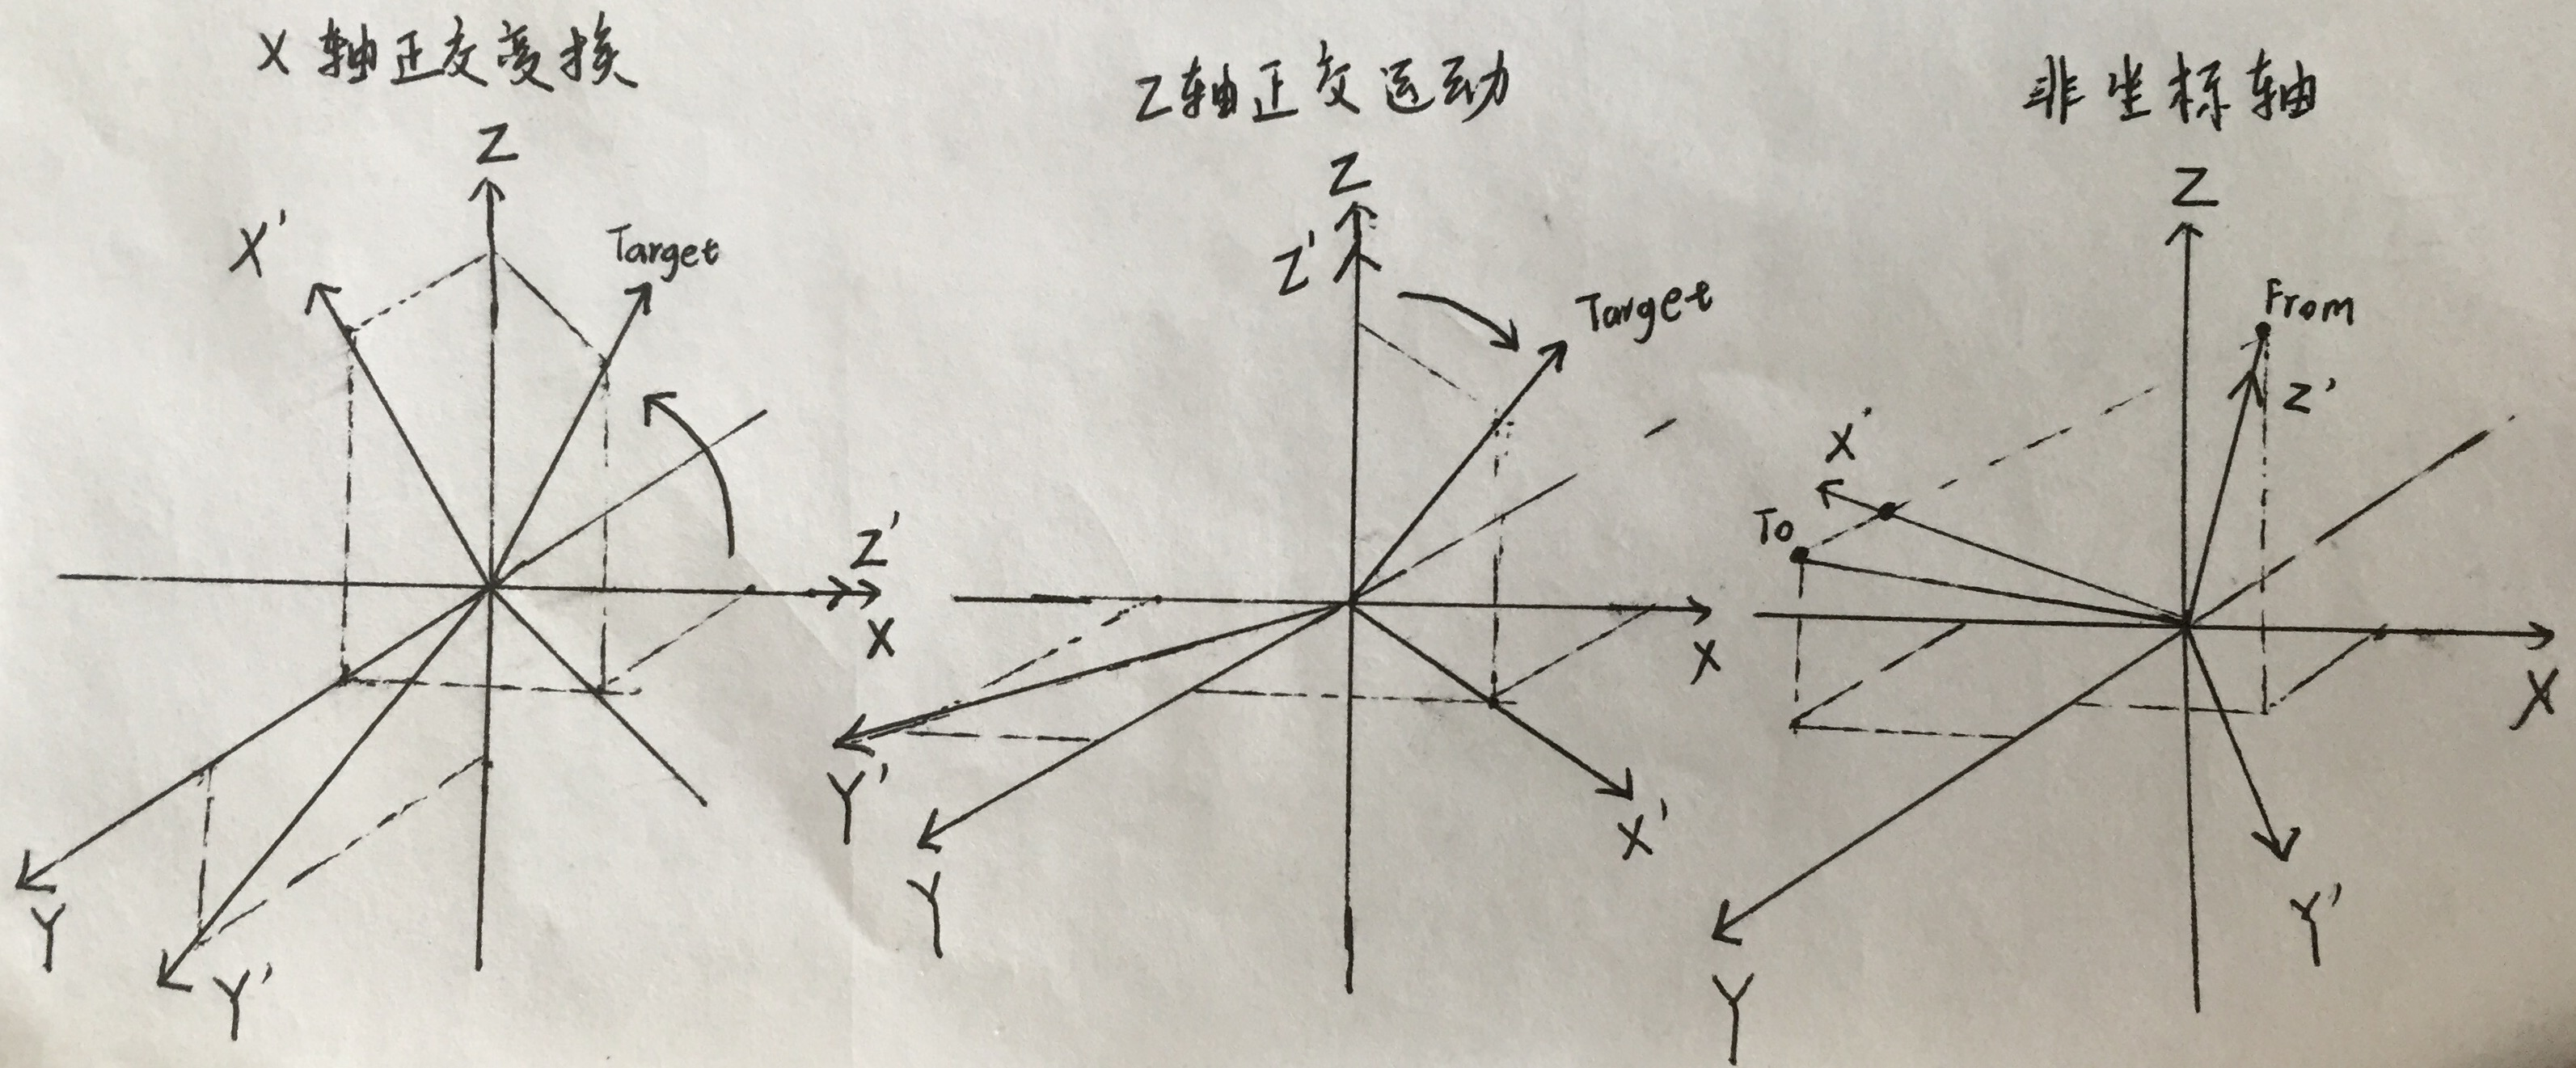 X 轴正交变换
Z
X'
Target
Z'
X
Y
Y'
Z轴正交运动
Z
Z'
Target
X
Y'
X'
Y
非坐标轴
Z
From
Z'
X'
To
X
Y'
Y